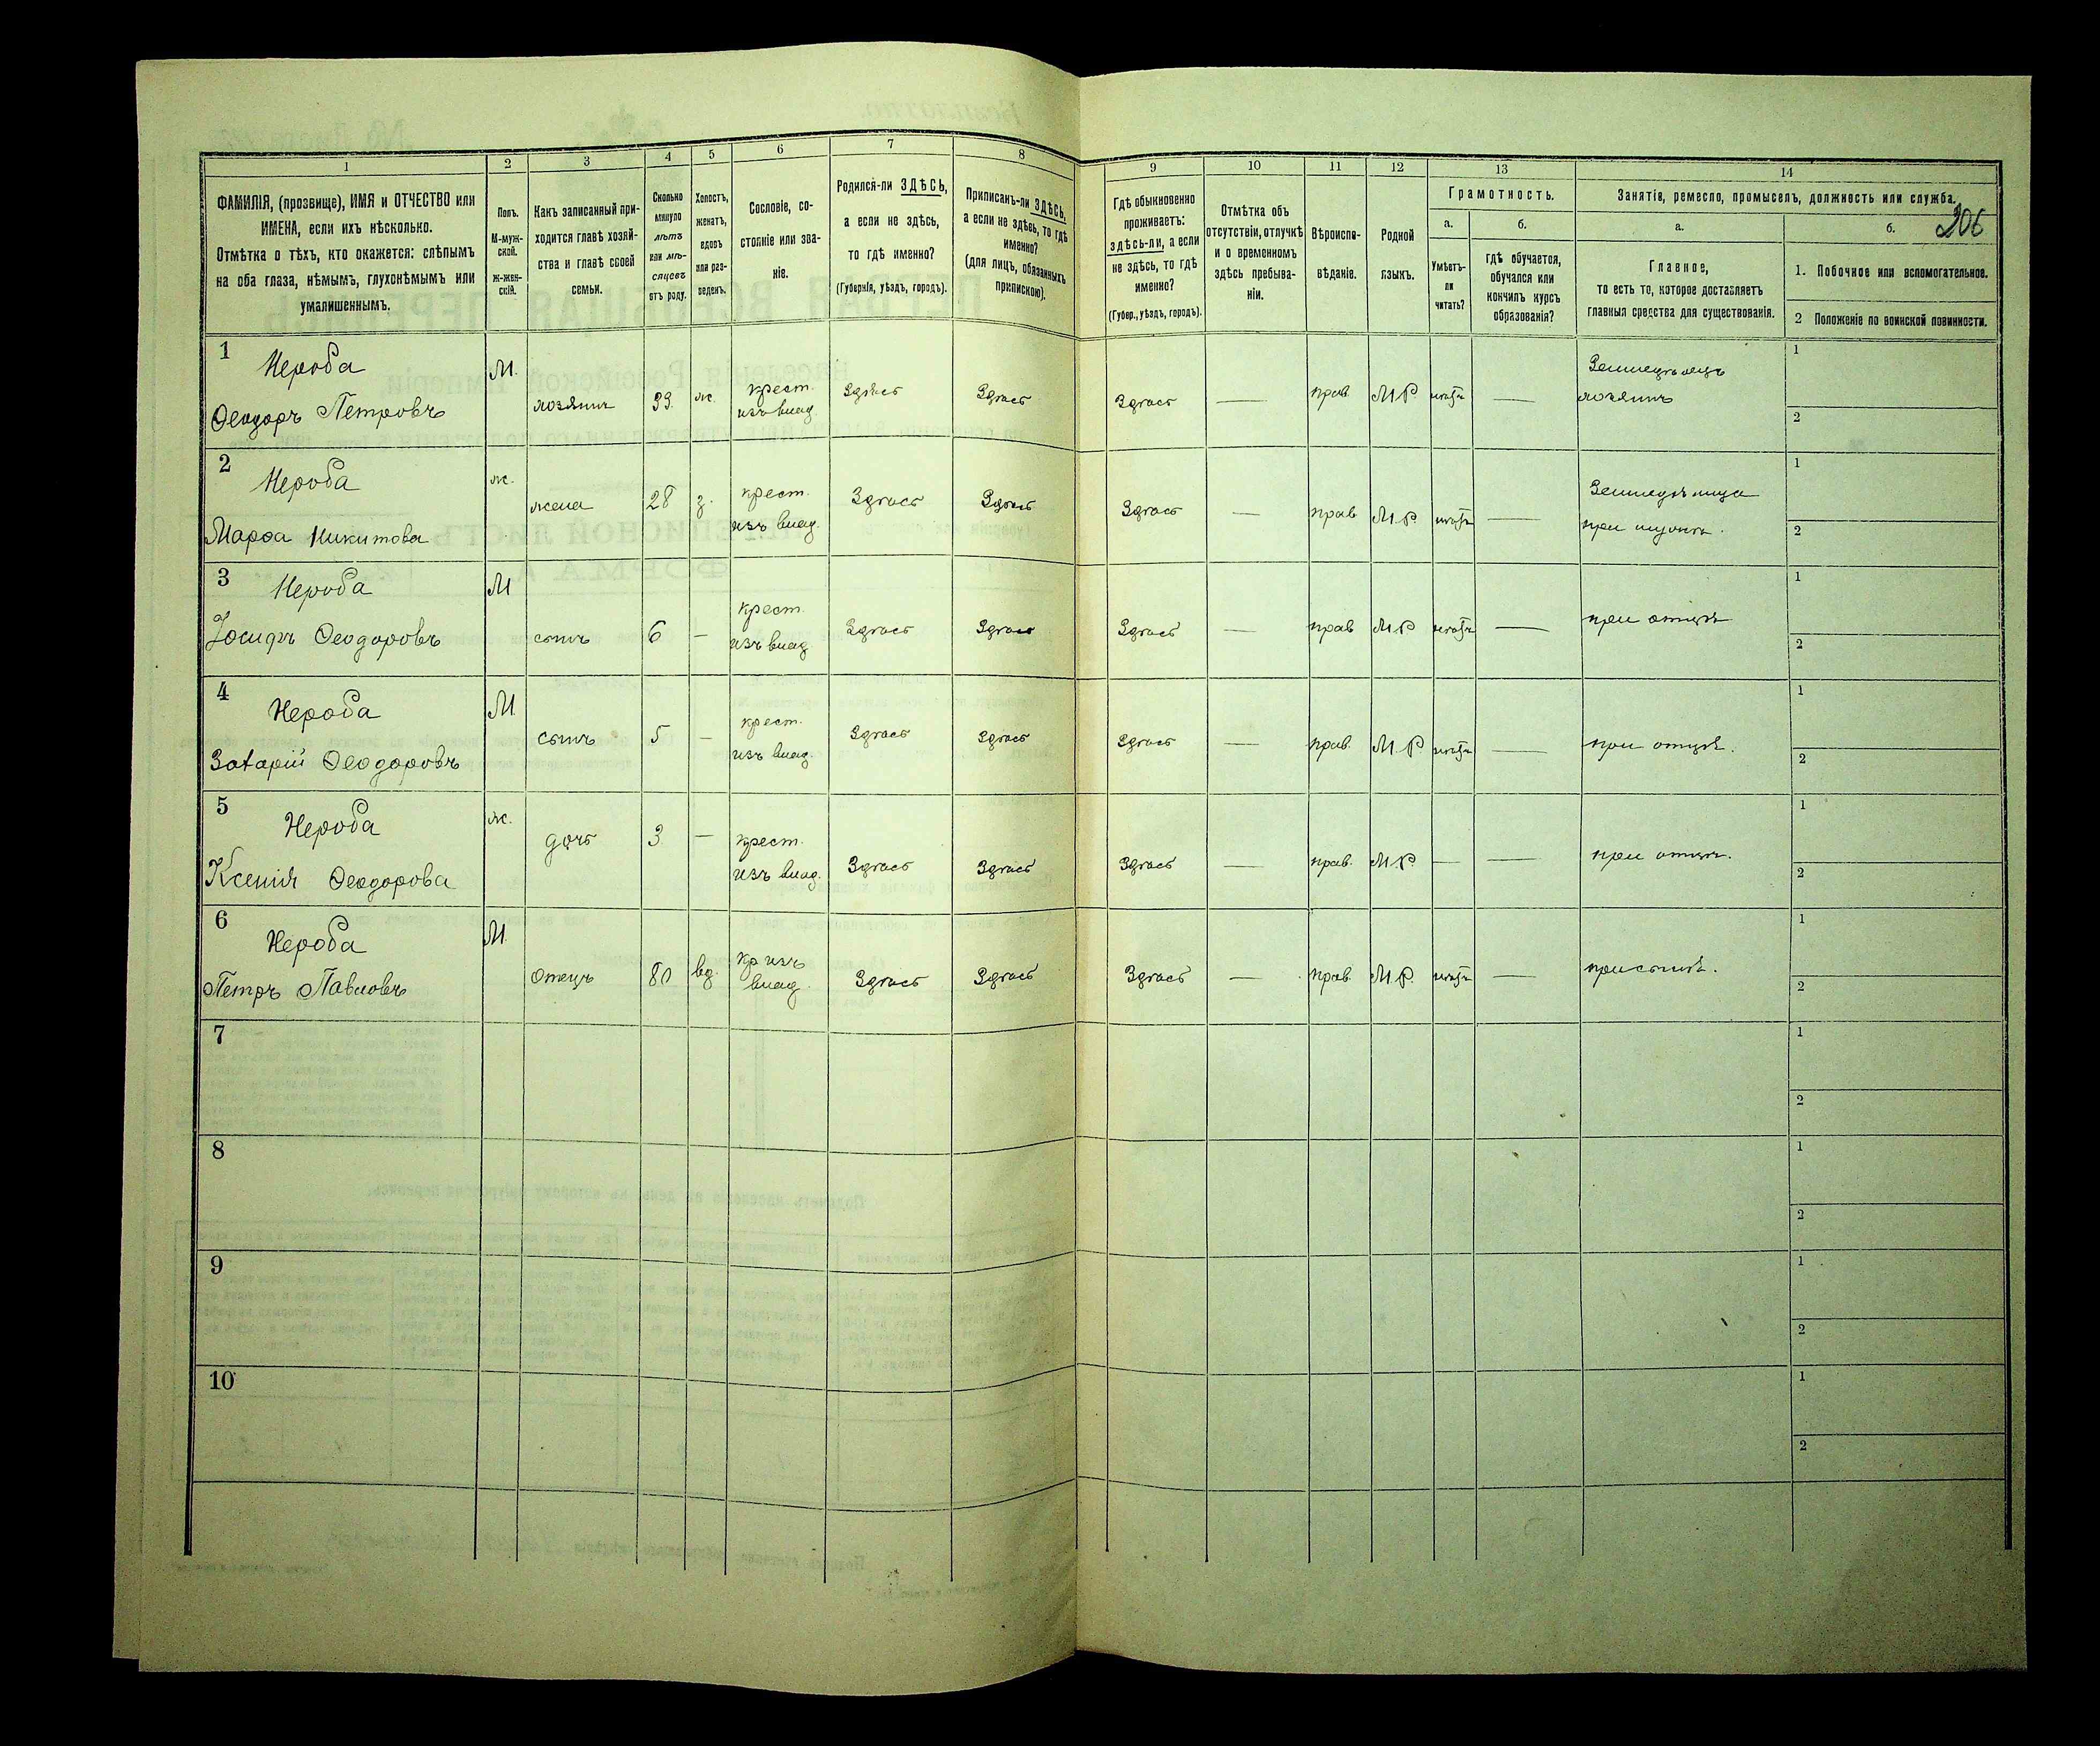 1 2 3 4 5 6 7 8 9 10 11 12 13 14
ФАМИЛІЯ, (прозвище), ИМЯ и ОТЧЕСТВО или
ИМЕНА, если ихъ нѣсколько.
Отмѣтка о тѣхъ, кто окажется: слѣпымъ
на оба глаза, нѣмымъ, глухонѣмымъ или
умалишеннымъ.
Полъ.
М-муж-
ской.
ж-жен-
скій.
Какъ записанный при-
ходится главѣ хозяй-
ства и главѣ своей
семьи.
Сколько
минуло
лѣтъ
или мѣ-
сяцевъ
отъ роду.
Холостъ,
женатъ,
вдовъ
или раз-
веденъ.
Сословіе, со-
стояніе или зва-
ніе.
Родился-ли ЗДѢСЬ,
а если не здѣсь,
то гдѣ именно?
(Губернія, уѣздъ, городъ).
Приписанъ-ли ЗДѢСЬ,
а если не здѣсь, то гдѣ
именно?
(для лицъ, обязанныхъ
припискою).
Гдѣ обыкновенно
проживаетъ:
здѣсь-ли, а если
не здѣсь, то гдѣ
именно?
(Губер., уѣздъ, городъ).
Отмѣтка объ
отсутствіи, отлучкѣ
и о временномъ
здѣсь пребыва-
ніи.
Вѣроиспо-
вѣданіе.
Родной
языкъ.
Грамотность.
а.
Умѣетъ-
ли
читать?
б.
гдѣ обучается,
обучался или
кончилъ курсъ
образованія?
Занятіе, ремесло, промыселъ, должность или служба.
306
а.
Главное,
то есть то, которое доставляетъ
главныя средства для существованія.
б.
1. Побочное или вспомогательное.
2 Положеніе по воинской повинности.
1 Нероба
Ѳеодоръ Петровъ
М.
хозяинъ
33.
ж.
крест.
изъ влад.
Здѣсь
Здѣсь
Здѣсь —
прав.
М.Р.
нѣтъ —
Земледѣлецъ
хозяинъ
1
2
2 Нероба
Марѳа Никитова
ж.
жена
28
з.
крест.
изъ влад.
Здѣсь
Здѣсь
Здѣсь —
прав
М.Р.
нѣтъ —
при мужѣ.
1
2
3 Нероба
Іосифъ Ѳеодоровъ
М
сынъ
6
—
крест.
изъ влад
Здѣсь
Здѣсь
Здѣсь —
прав
М.Р
нѣтъ —
при отцѣ
1
2
4 Нероба
Захарій Ѳеодоровъ
М.
сынъ
5
—
крест.
изъ влад.
Здѣсь
Здѣсь
Здѣсь —
прав.
М.Р
нѣтъ —
при отцѣ.
1
2
5 Нероба
Ксенія Ѳеодорова
ж.
дочь
3
—
крест.
изъ влад.
Здѣсь
Здѣсь
Здѣсь —
прав.
М.Р.
— —
при отцѣ.
1
2
6 Нероба
Петръ Павловъ
М.
Отецъ
80
вд.
кр изъ
влад.
Здѣсь
Здѣсь
Здѣсь —
прав.
М.Р.
нѣтъ —
при сынѣ.
1
2
7
1
2
8
1
2
9
1
2
10
1
2